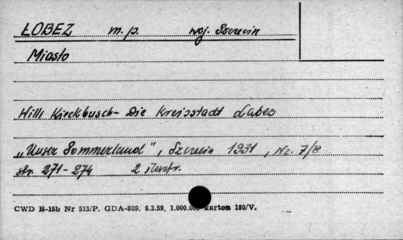 ŁOBEZ m. p. woj. Szczecin
Miasto
Willi Kieckbusch - Die Kreisstadt Labes
„Unser Pommerland", Szczecin 1931, Nr. 7/8
str. 271 - 274 2 ilustr.
CWD B-15b Nr 515/P. GDA-809. 6.3.59. 1.000.00 karton 180/V.